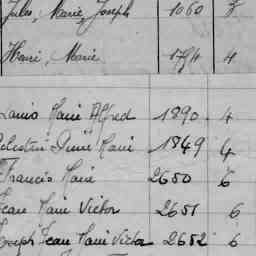 Jules, Marie, Joseph 1060 3
Henri, Marie 1794 4
Louis Marie Alfred 1890 4
Célestin Désiré Marie 1849 4
Francis Marie 2650 6
Jean Marie Victor 2651 6
Joseph Jean Marie Victor 2652 6